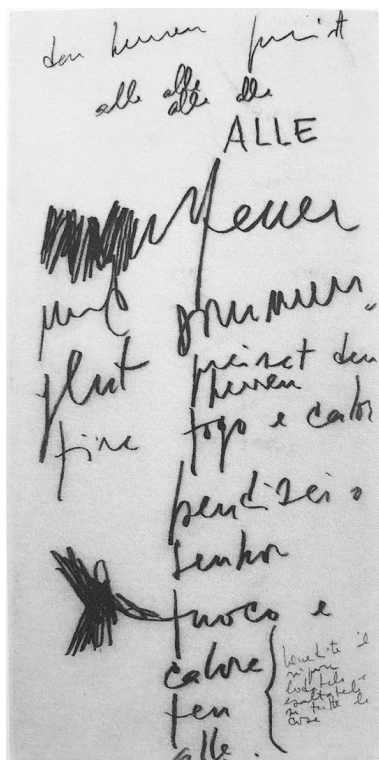 den herren preist
alle alle
alle alle
ALLE
feuer
und
glut preiset den
herren
fire fogo e calor
bendizei o
senhor
fuoco e
calore
feu
alle.
benedite il
lodatelo e
esaltatelo
tutte le
cose